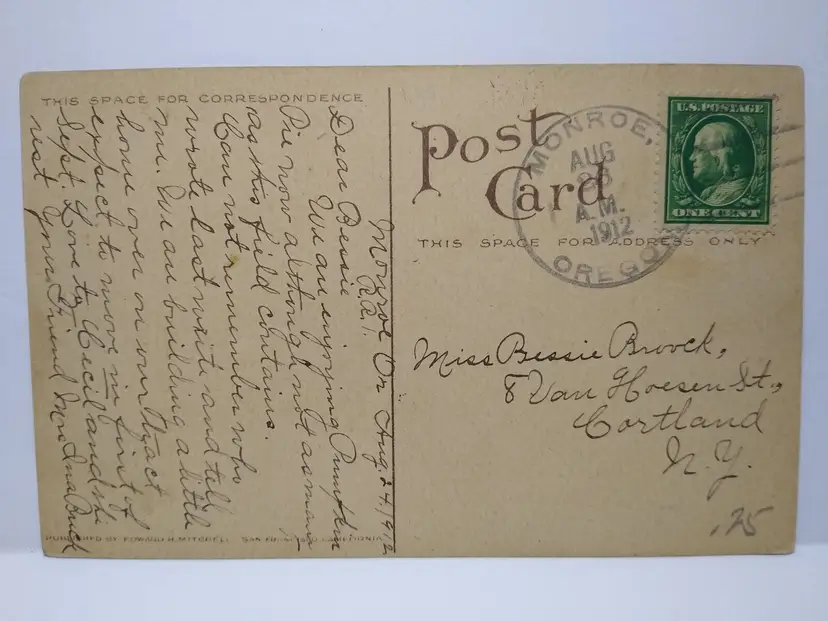 THIS SPACE FOR CORRESPONDENCE
Monroe Or Aug. 24, 1912
R.R. 1.
Dear Bessie
We are enjoying Pumpkin
Pie now although not as many
as this field contains.
Can not remember who
wrote last write and tell
me. We are building a little
home over on our tract
expect to move in first of
Sept. Love to Cecil and the
rest Your Friend Mrs Ina
PUBLISHED BY EDWARD H. MITCHELL SAN FRANCISCO CALIFORNIA
Post
Card
MONROE,
AUG
A.M.
1912
OREGON
U.S. POSTAGE
ONE CENT
THIS SPACE FOR ADDRESS ONLY
Miss Bessie Broock,
8 Van Hoesen St.,
Cortland
N.Y.
.75